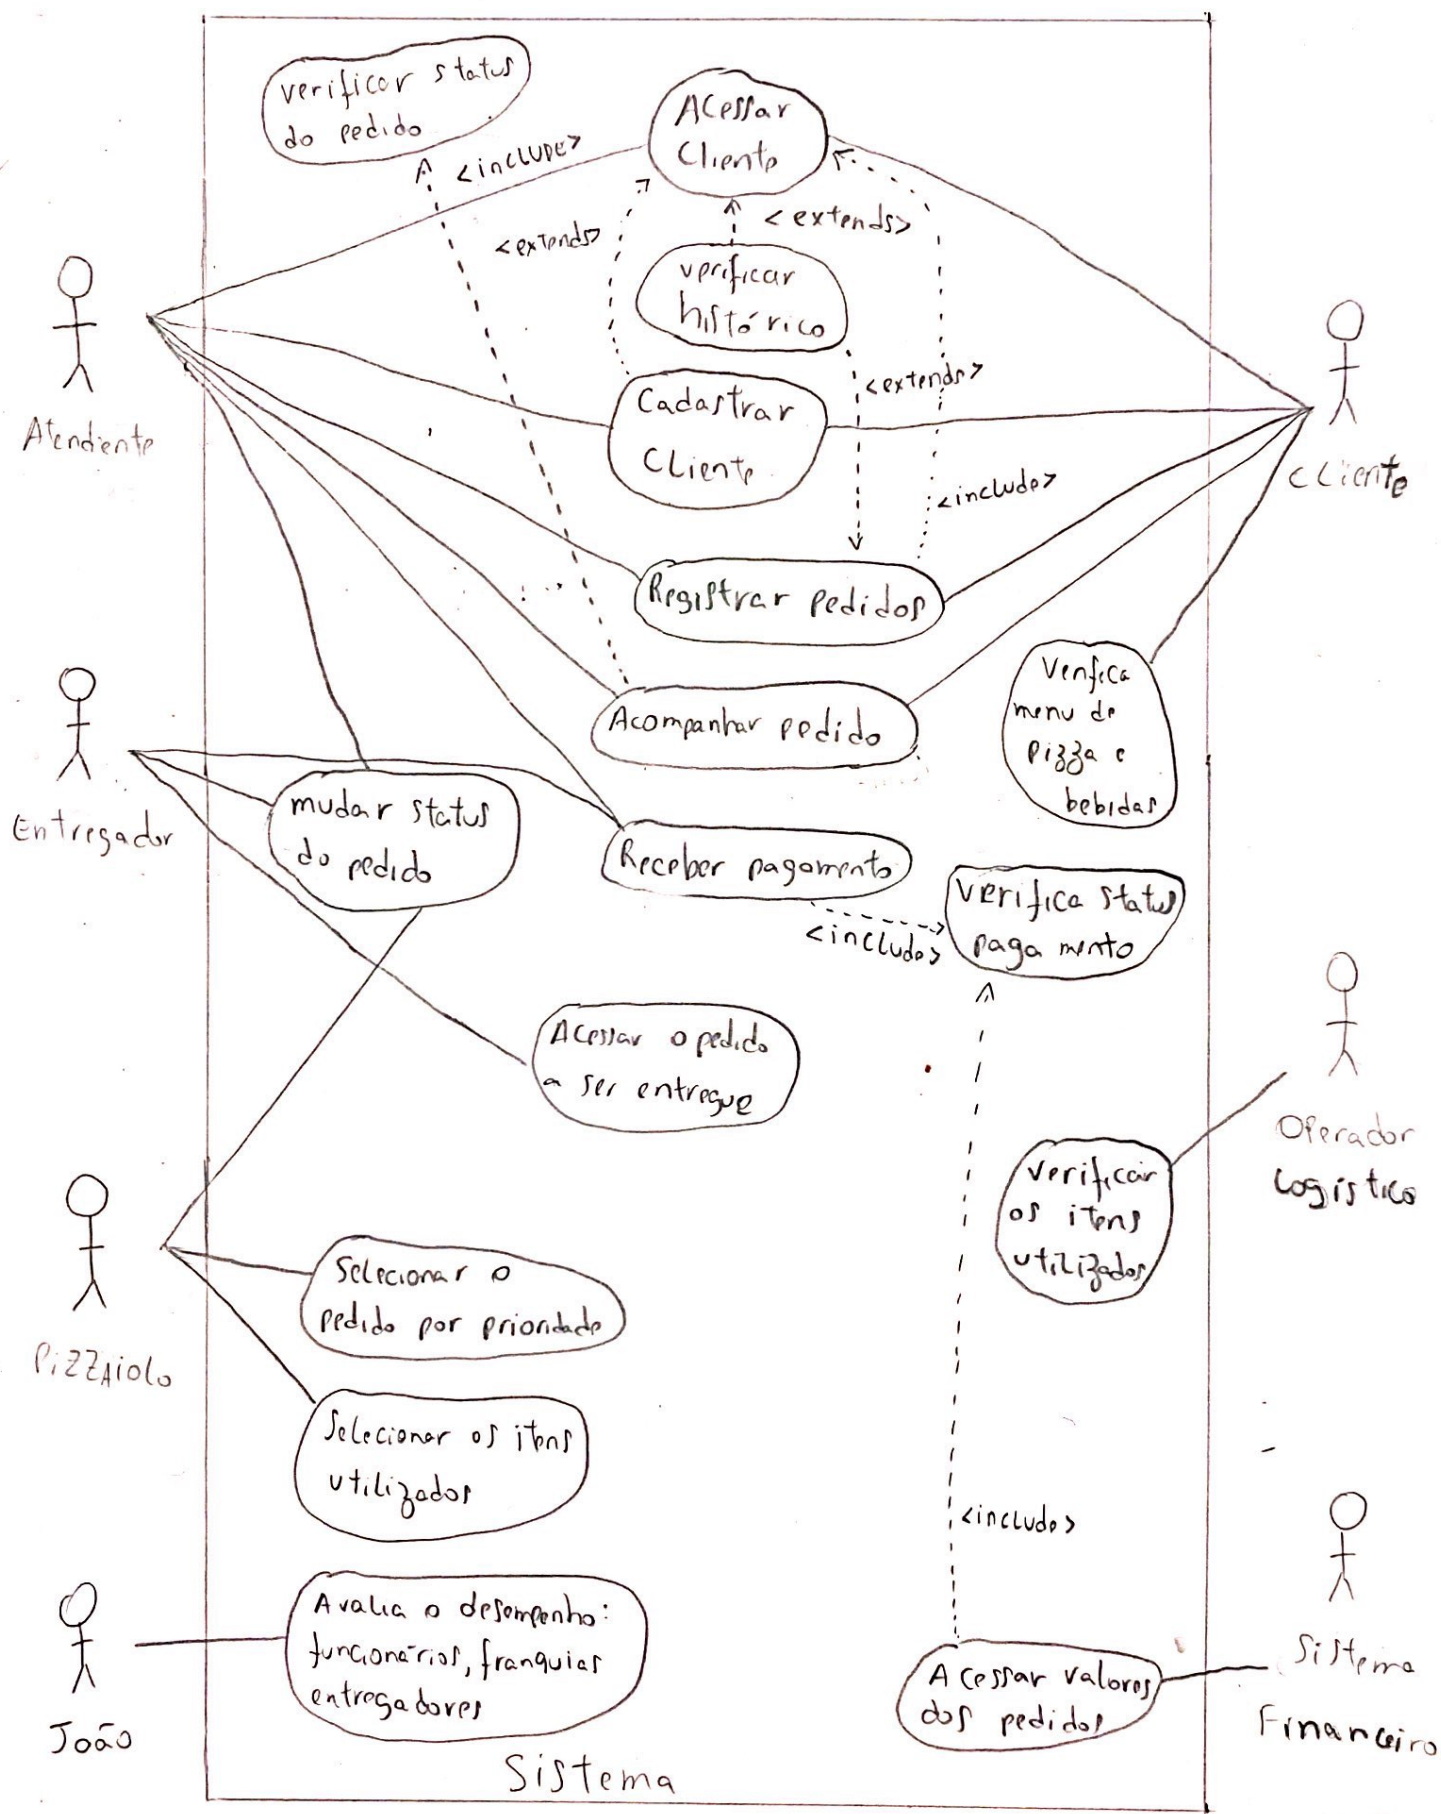 verificar status
do pedido
Acessar
Cliente
<include>
<extends>
<extends>
verificar
histórico
<extends>
Atendiente
Cadastrar
Cliente
Cliente
<include>
Registrar pedidos
Verifica
menu de
pizza e
bebidas
Acompanhar pedido
Entregador
mudar status
do pedido
Receber pagamento
<include>
verifica status
pagamento
Acessar o pedido
a ser entregue
Operador
Logístico
verificar
os itens
utilizados
Selecionar o
pedido por prioridade
Pizzaiolo
Selecionar os itens
utilizados
<include>
Avalia o desempenho:
funcionários, franquias
entregadores
João
Acessar valores
dos pedidos
Sistema
Financeiro
Sistema